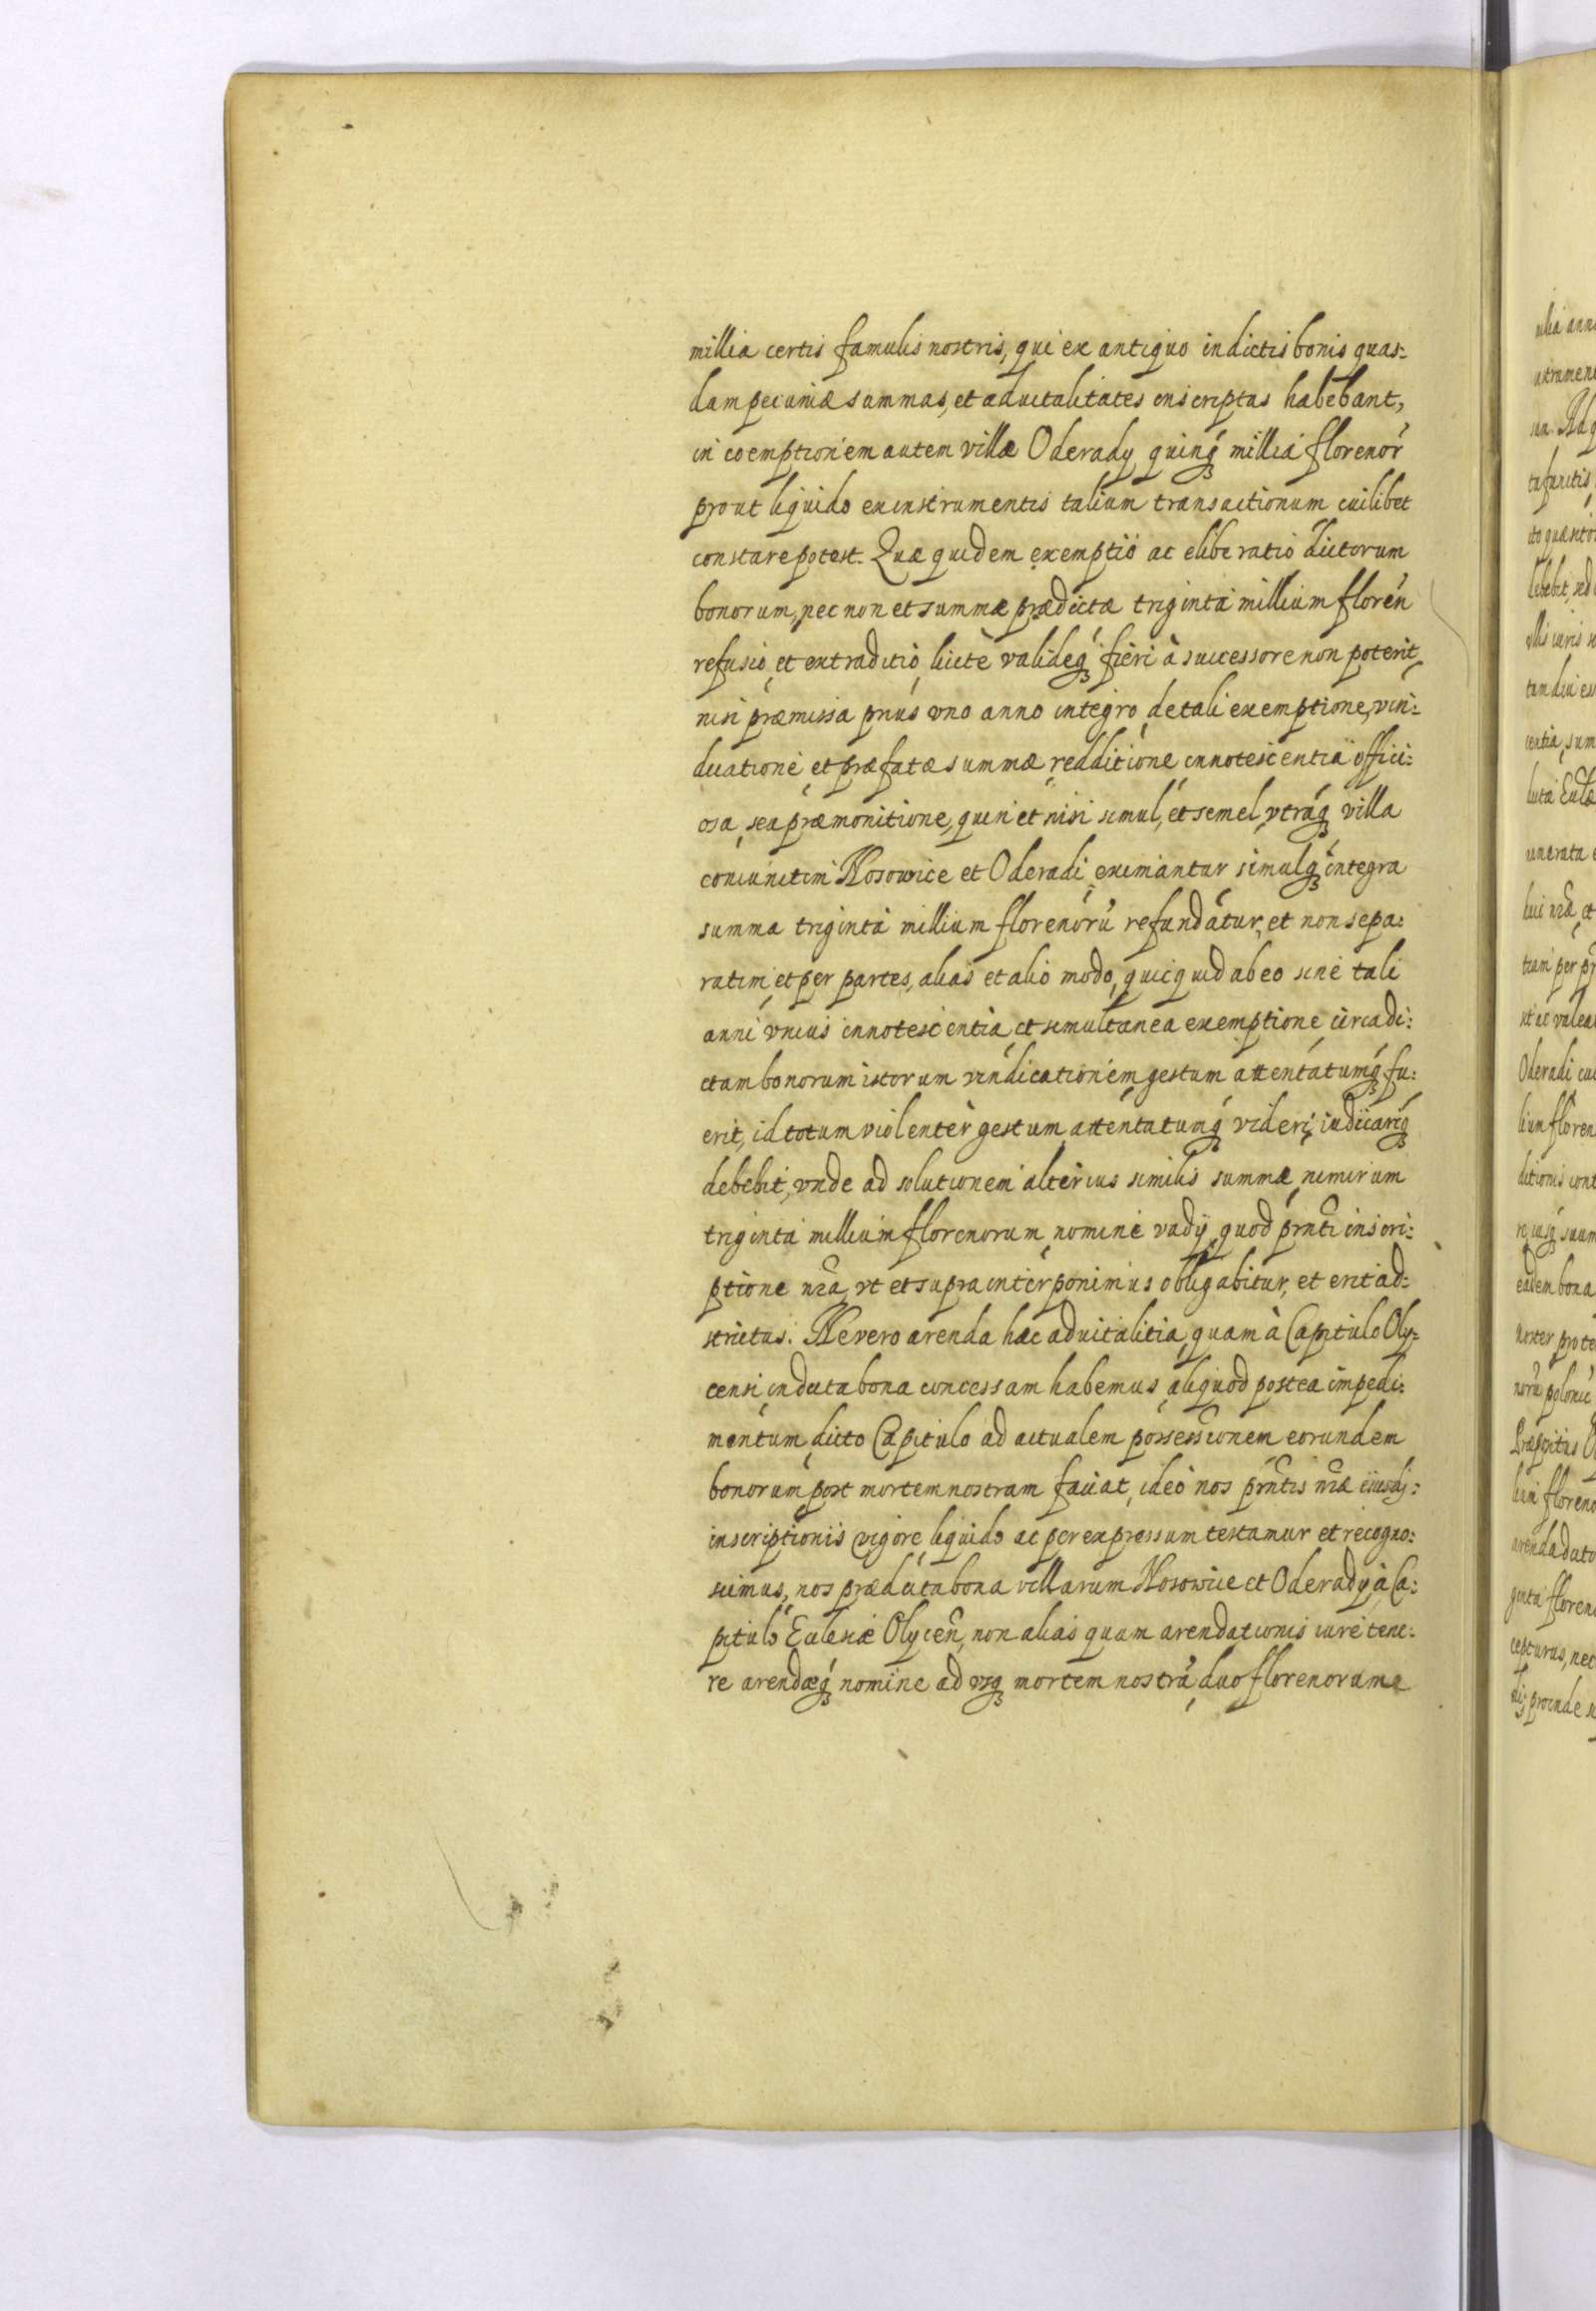 millia certis famulis nostris, qui ex antiquo in dictis bonis quas-
dam pecuniæ summas, et aduitalitates inscriptas habebant,
in coemptionem autem villæ Oderady quinq́ȝ millia florenor̃
prout liquido ex instrumentis talium transactionum cuilibet
constare potest. Quæ quidem exemptio ac eliberatio dictorum
bonorum, nec non et summæ prædictæ triginta millium floreñ
refusio, et extraditio, licitè valideq́ȝ fieri à successore non poterit,
nisi præmissa prius vno anno integro, de tali exemptione, vin:
dicatione, et præfatæ summæ redditione innotescentia offici:
osa, seu præmonitione, quin et nisi simul, et semel, vtraq́ȝ villa
coniunctim Nosowice et Oderadi, eximantur simulq́ȝ integra
summa triginta millium florenorũ refundatur, et non sepa:
ratim, et per partes, alias et alio modo, quicquid ab eo sine tali
anni vnius innotescentia, et simultanea exemptione, circa di:
ctam bonorum istorum vindicationem gestum attentatumq́ȝ fu:
erit, id totum violenter gestum attentatumq́ȝ videri, iudicariq́ȝ
debebit, vnde ad solutionem alterius similis summæ nimirum
triginta millium florenorum, nomine vadij, quod prñti inscri:
ptione nr̃a, vt et supra interponimus obligabitur, et erit ad:
strictus. Ne vero arenda hæc aduitalitia, quam à Capitulo Oly:
censi in dicta bona concessam habemus, aliquod postea impedi:
mentum, dicto Capitulo ad actualem possessionem eorundem
bonorum post mortem nostram faciat, ideò nos prñtis nr̃æ eiusdj:
inscriptionis vigore, liquido ac per expressum testamur et recogno:
scimus, nos prædicta bona villarum Nosowice et Oderady, à Ca:
pitulo Ecclesiæ Olyceñ, non alias quam arendationis iure tene:
re arendæq́ȝ nomine ad vsq́ȝ mortem nostrã, duo florenorum